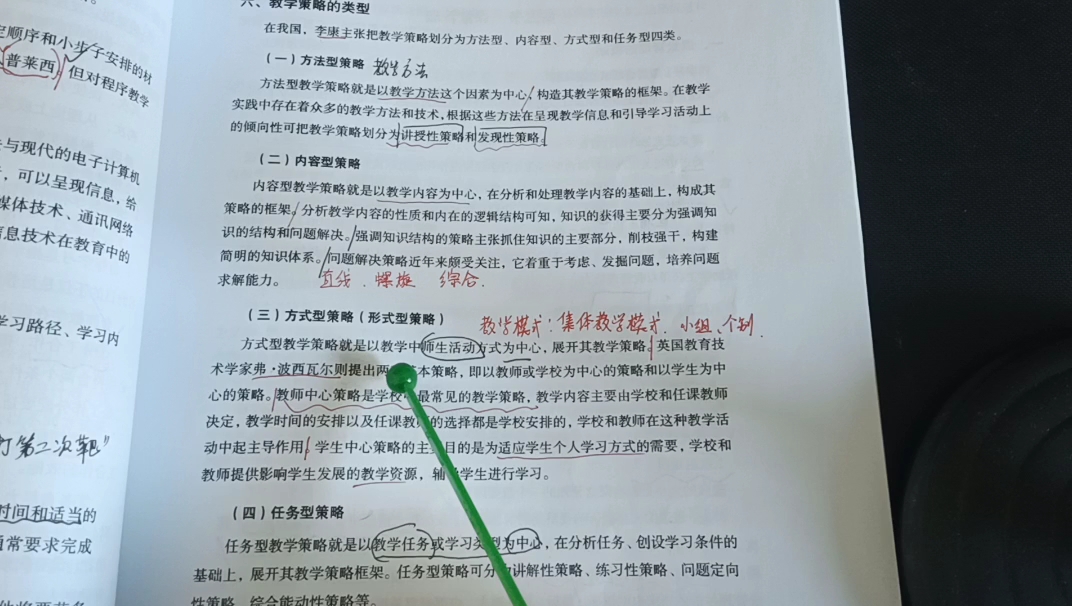 定顺序和小步子安排的材
普莱西。但对程序教学
与现代的电子计算机
，可以呈现信息，给
媒体技术、通讯网络
信息技术在教育中的
学习路径、学习内
打第二次靶”
时间和适当的
通常要求完成
六、教学策略的类型
在我国，李康主张把教学策略划分为方法型、内容型、方式型和任务型四类。
（一）方法型策略 教学方法
方法型教学策略就是以教学方法这个因素为中心，构造其教学策略的框架。在教学
实践中存在着众多的教学方法和技术，根据这些方法在呈现教学信息和引导学习活动上
的倾向性可把教学策略划分为讲授性策略和发现性策略。
（二）内容型策略
内容型教学策略就是以教学内容为中心，在分析和处理教学内容的基础上，构成其
策略的框架。分析教学内容的性质和内在的逻辑结构可知，知识的获得主要分为强调知
识的结构和问题解决。强调知识结构的策略主张抓住知识的主要部分，削枝强干，构建
简明的知识体系。问题解决策略近年来颇受关注，它着重于考虑、发掘问题，培养问题
求解能力。 直线、螺旋 综合.
（三）方式型策略（形式型策略） 教学模式：集体教学模式、小组、个别.
方式型教学策略就是以教学中师生活动方式为中心，展开其教学策略。英国教育技
术学家弗·波西瓦尔则提出两 本策略，即以教师或学校为中心的策略和以学生为中
心的策略。教师中心策略是学校 最常见的教学策略，教学内容主要由学校和任课教师
决定，教学时间的安排以及任课教 的选择都是学校安排的，学校和教师在这种教学活
动中起主导作用 学生中心策略的主 目的是为适应学生个人学习方式的需要，学校和
教师提供影响学生发展的教学资源，辅 学生进行学习。
（四）任务型策略
任务型教学策略就是以教学任务或学习类型为中心，在分析任务、创设学习条件的
基础上，展开其教学策略框架。任务型策略可分 讲解性策略、练习性策略、问题定向
性策略、综合能动性策略等。